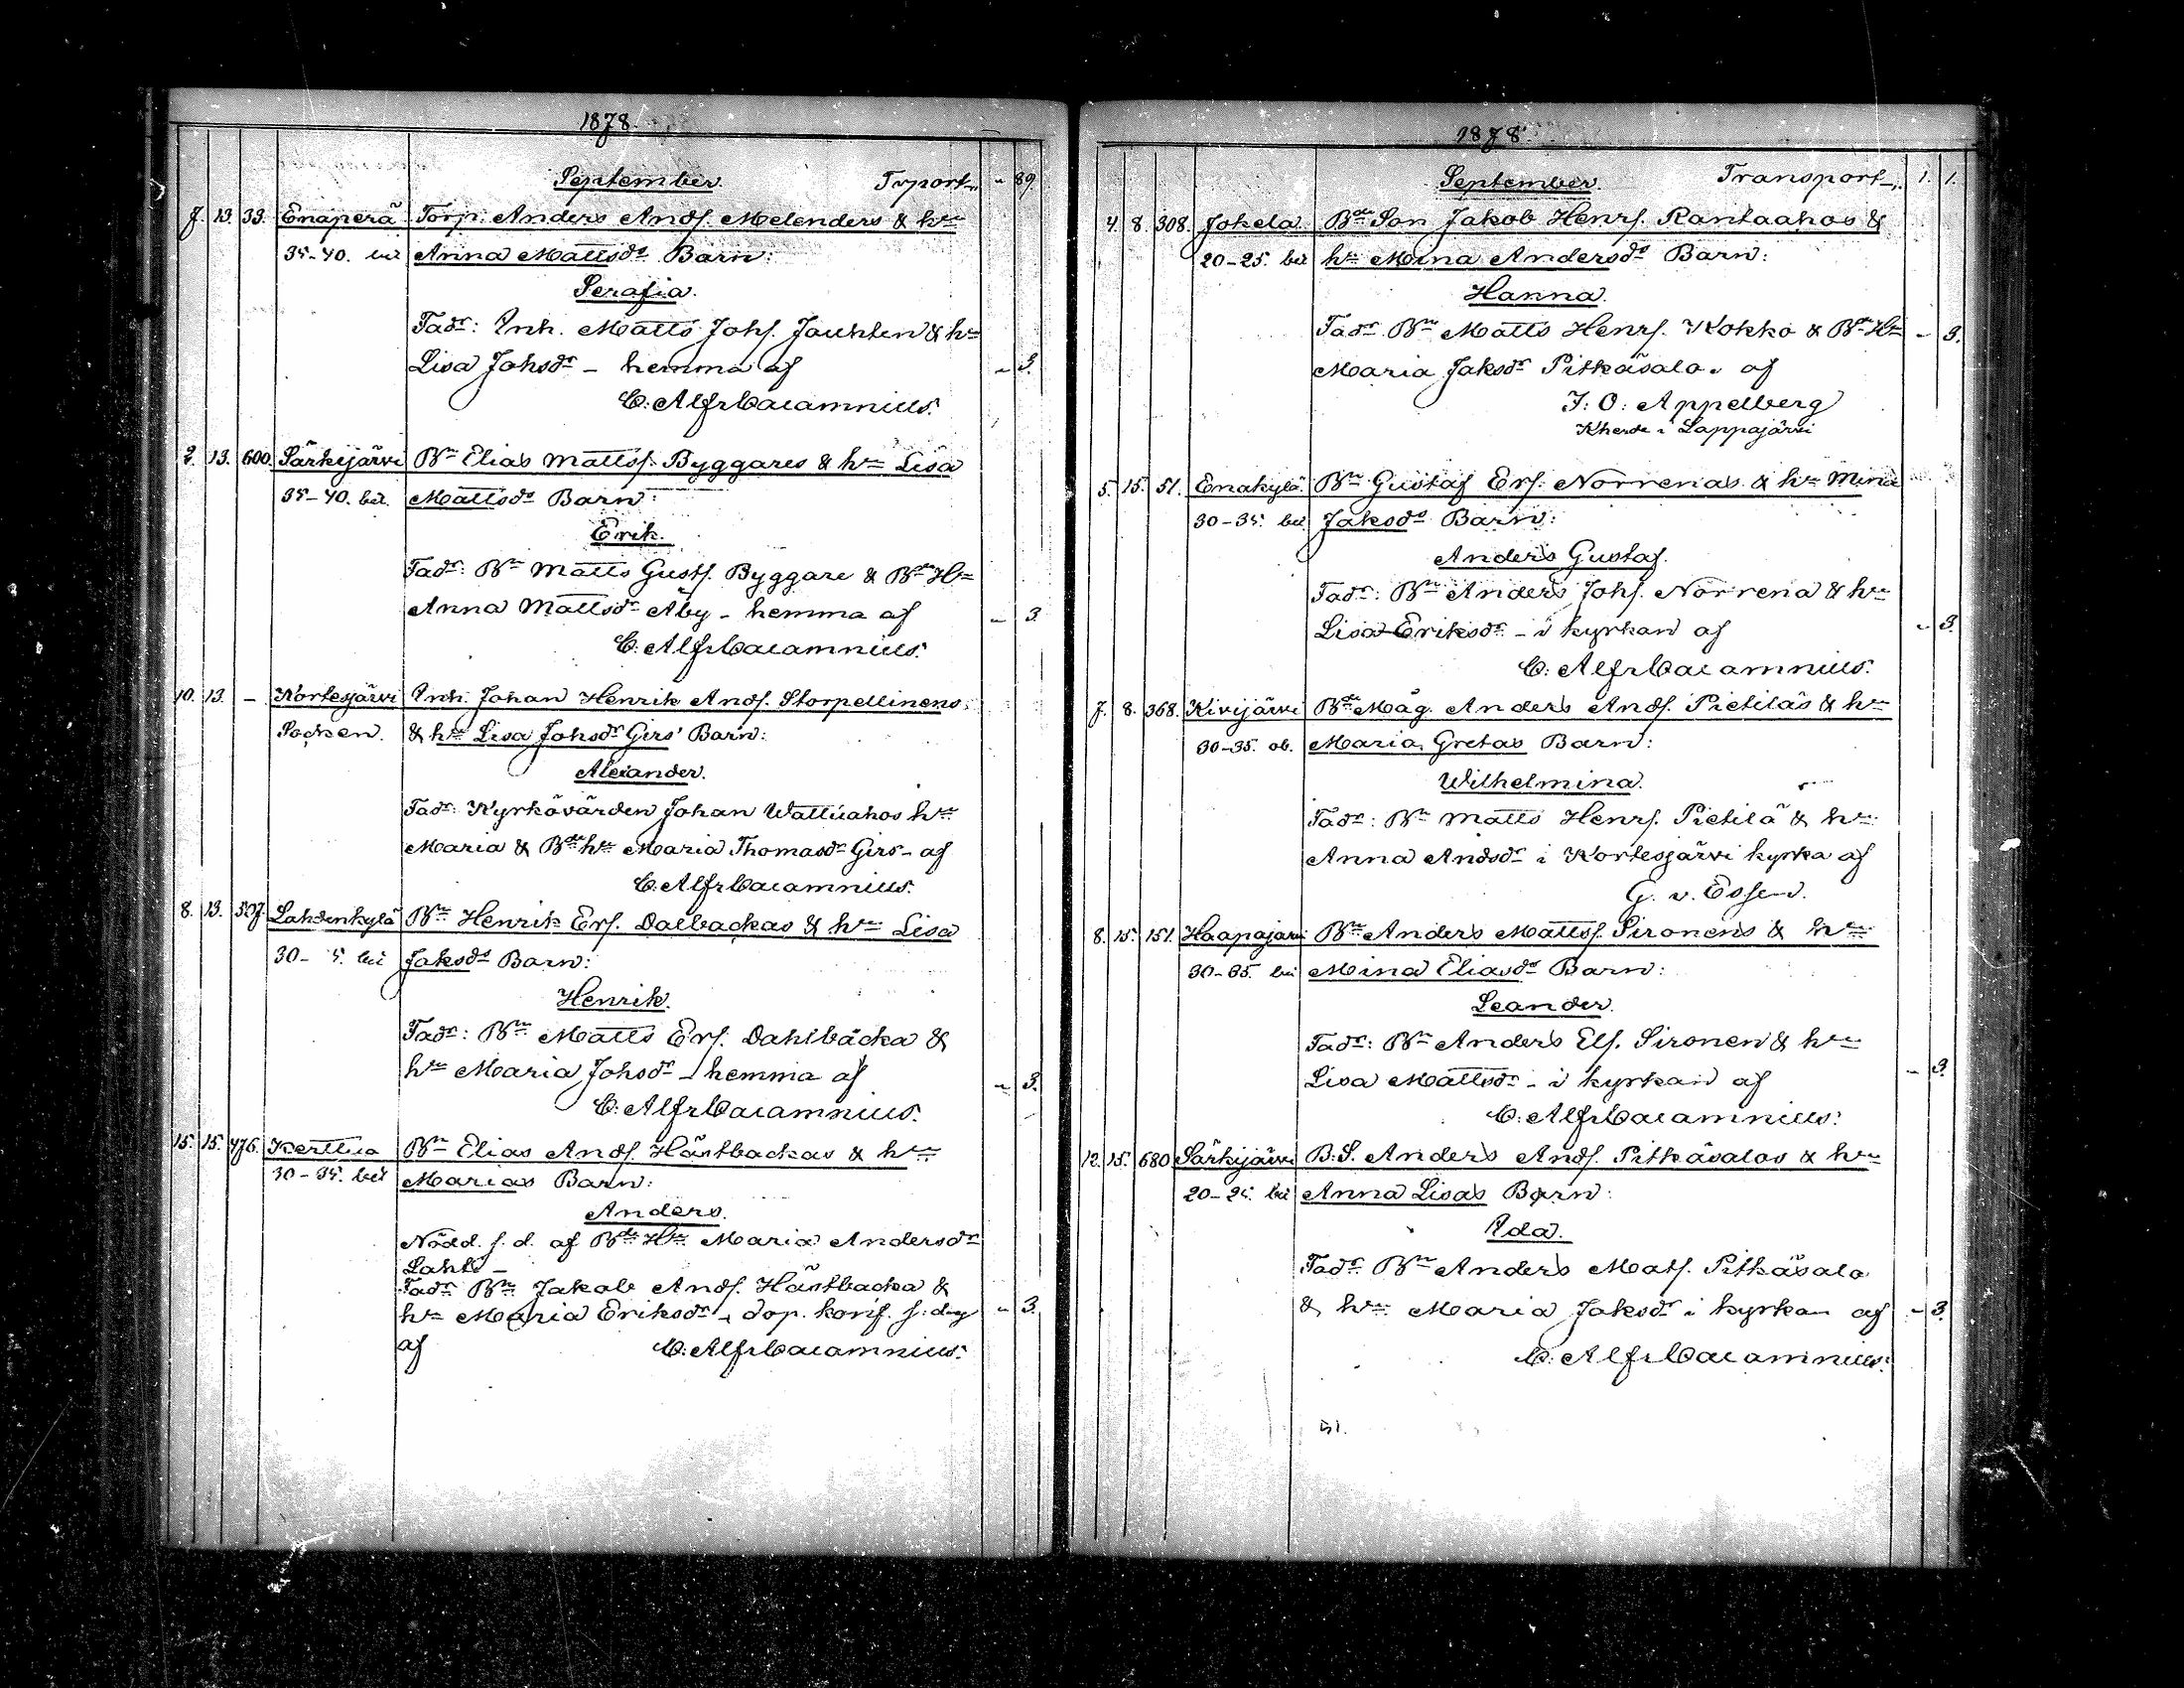 1878.
September. Trport " 89.
7. 13. 33. Enaperä Torp. Anders Andſ. Melenders & hu
35-40. bei Anna Mattsdr Barn:
Serafia.
Fadr: Inh. Matts Johſ. Jauhten & hu
Lisa Johsdr - hemma af " 3.
C: Alfr Cacamnius.
2. 13. 600. Särkijärvi Bn Elias Mattsſ. Byggares & hu Lisa
35-40. bei. Mattsdr Barn:
Erik.
Fadr: Bn Matts Gustſ. Byggare & Bde Hu
Anna Mattsdr Åby - hemma af " 3.
C: Alfr Cacamnius.
10. 13. - Kortesjärvi Inh. Johan Henrik Andſ. Storpellinens
Socken. & hu Lisa Johsdr Girs' Barn:
Alexander.
Fadr: Kyrkövärden Johan Wattuahos hu
Maria & Bde hu Maria Thomasdr Girs - af
C: Alfr Cacamnius.
8. 13. 507. Lahdenkylä Bn Henrik Erſ. Dalbackas & hu Lisa
30- 5. bei Jaksdr Barn:
Henrik.
Fadr: Bn Matts Erſ. Dahlbacka &
hu Maria Johsdr - hemma af " 3.
C: Alfr Cacamnius.
15. 15. 476. Kerttua Bn Elias Andſ. Hästbackas & hu
30-35. bei Marias Barn:
Anders.
Nödd. s. d. af Bde Hu Maria Andersdr
Lahti -
Fadr Bn Jakob Andſ. Hästbacka &
hu Maria Eriksdr, dop. konf. s: dag " 3.
af C: Alfr Cacamnius.
1878.
September. Transport 1. 1.
4. 8. 308. Jokela Bde Son Jakob Henrſ. Rantaahos &
20-25. bei hu Mina Andersdr Barn:
Hanna.
Fadr Bn Matts Henrſ. Kokko & Bde Hu " 3.
Maria Jaksdr Pitkäsalo. af
J: O: Appelberg
Kherde i Lappajärvi
5. 15. 51. Emakylä Bn Gustaf Erſ. Norrenas & hu Mina
30-35. bei Jaksdr Barn:
Anders Gustaf.
Fadr: Bn Anders Johſ. Norrena & hu
Lisa Eriksdr - i kyrkan af " 3.
C: Alfr Cacamnius.
7. 8. 368. Kivijärvi Bde Måg. Anders Andſ. Pietiläs & hu
30-35. ob. Maria Gretas Barn:
Wilhelmina.
Fadr: Bn Matts Henrſ. Pietilä & hu
Anna Andsdr i Kortesjärvi kyrka af
G. v. Essen.
8. 15. 151. Haapajärvi Bn Anders Mattsſ. Sironens & hu
30-35. bei Mina Eliasdr Barn:
Leander.
Fadr: Bn Anders Elſ. Sironen & hu
Lisa Mattsdr - i kyrkan af " 3.
C: Alfr Cacamnius.
12. 15. 680 Särkijärvi B: S. Anders Andſ. Pitkäsalos & hu
20-25. bei Anna Lisas Barn:
Ida.
Fadr Bn Anders Matſ. Pitkäsalo
& hu Maria Jaksdr i kyrkan af " 3.
C: Alfr Cacamnius.
51.